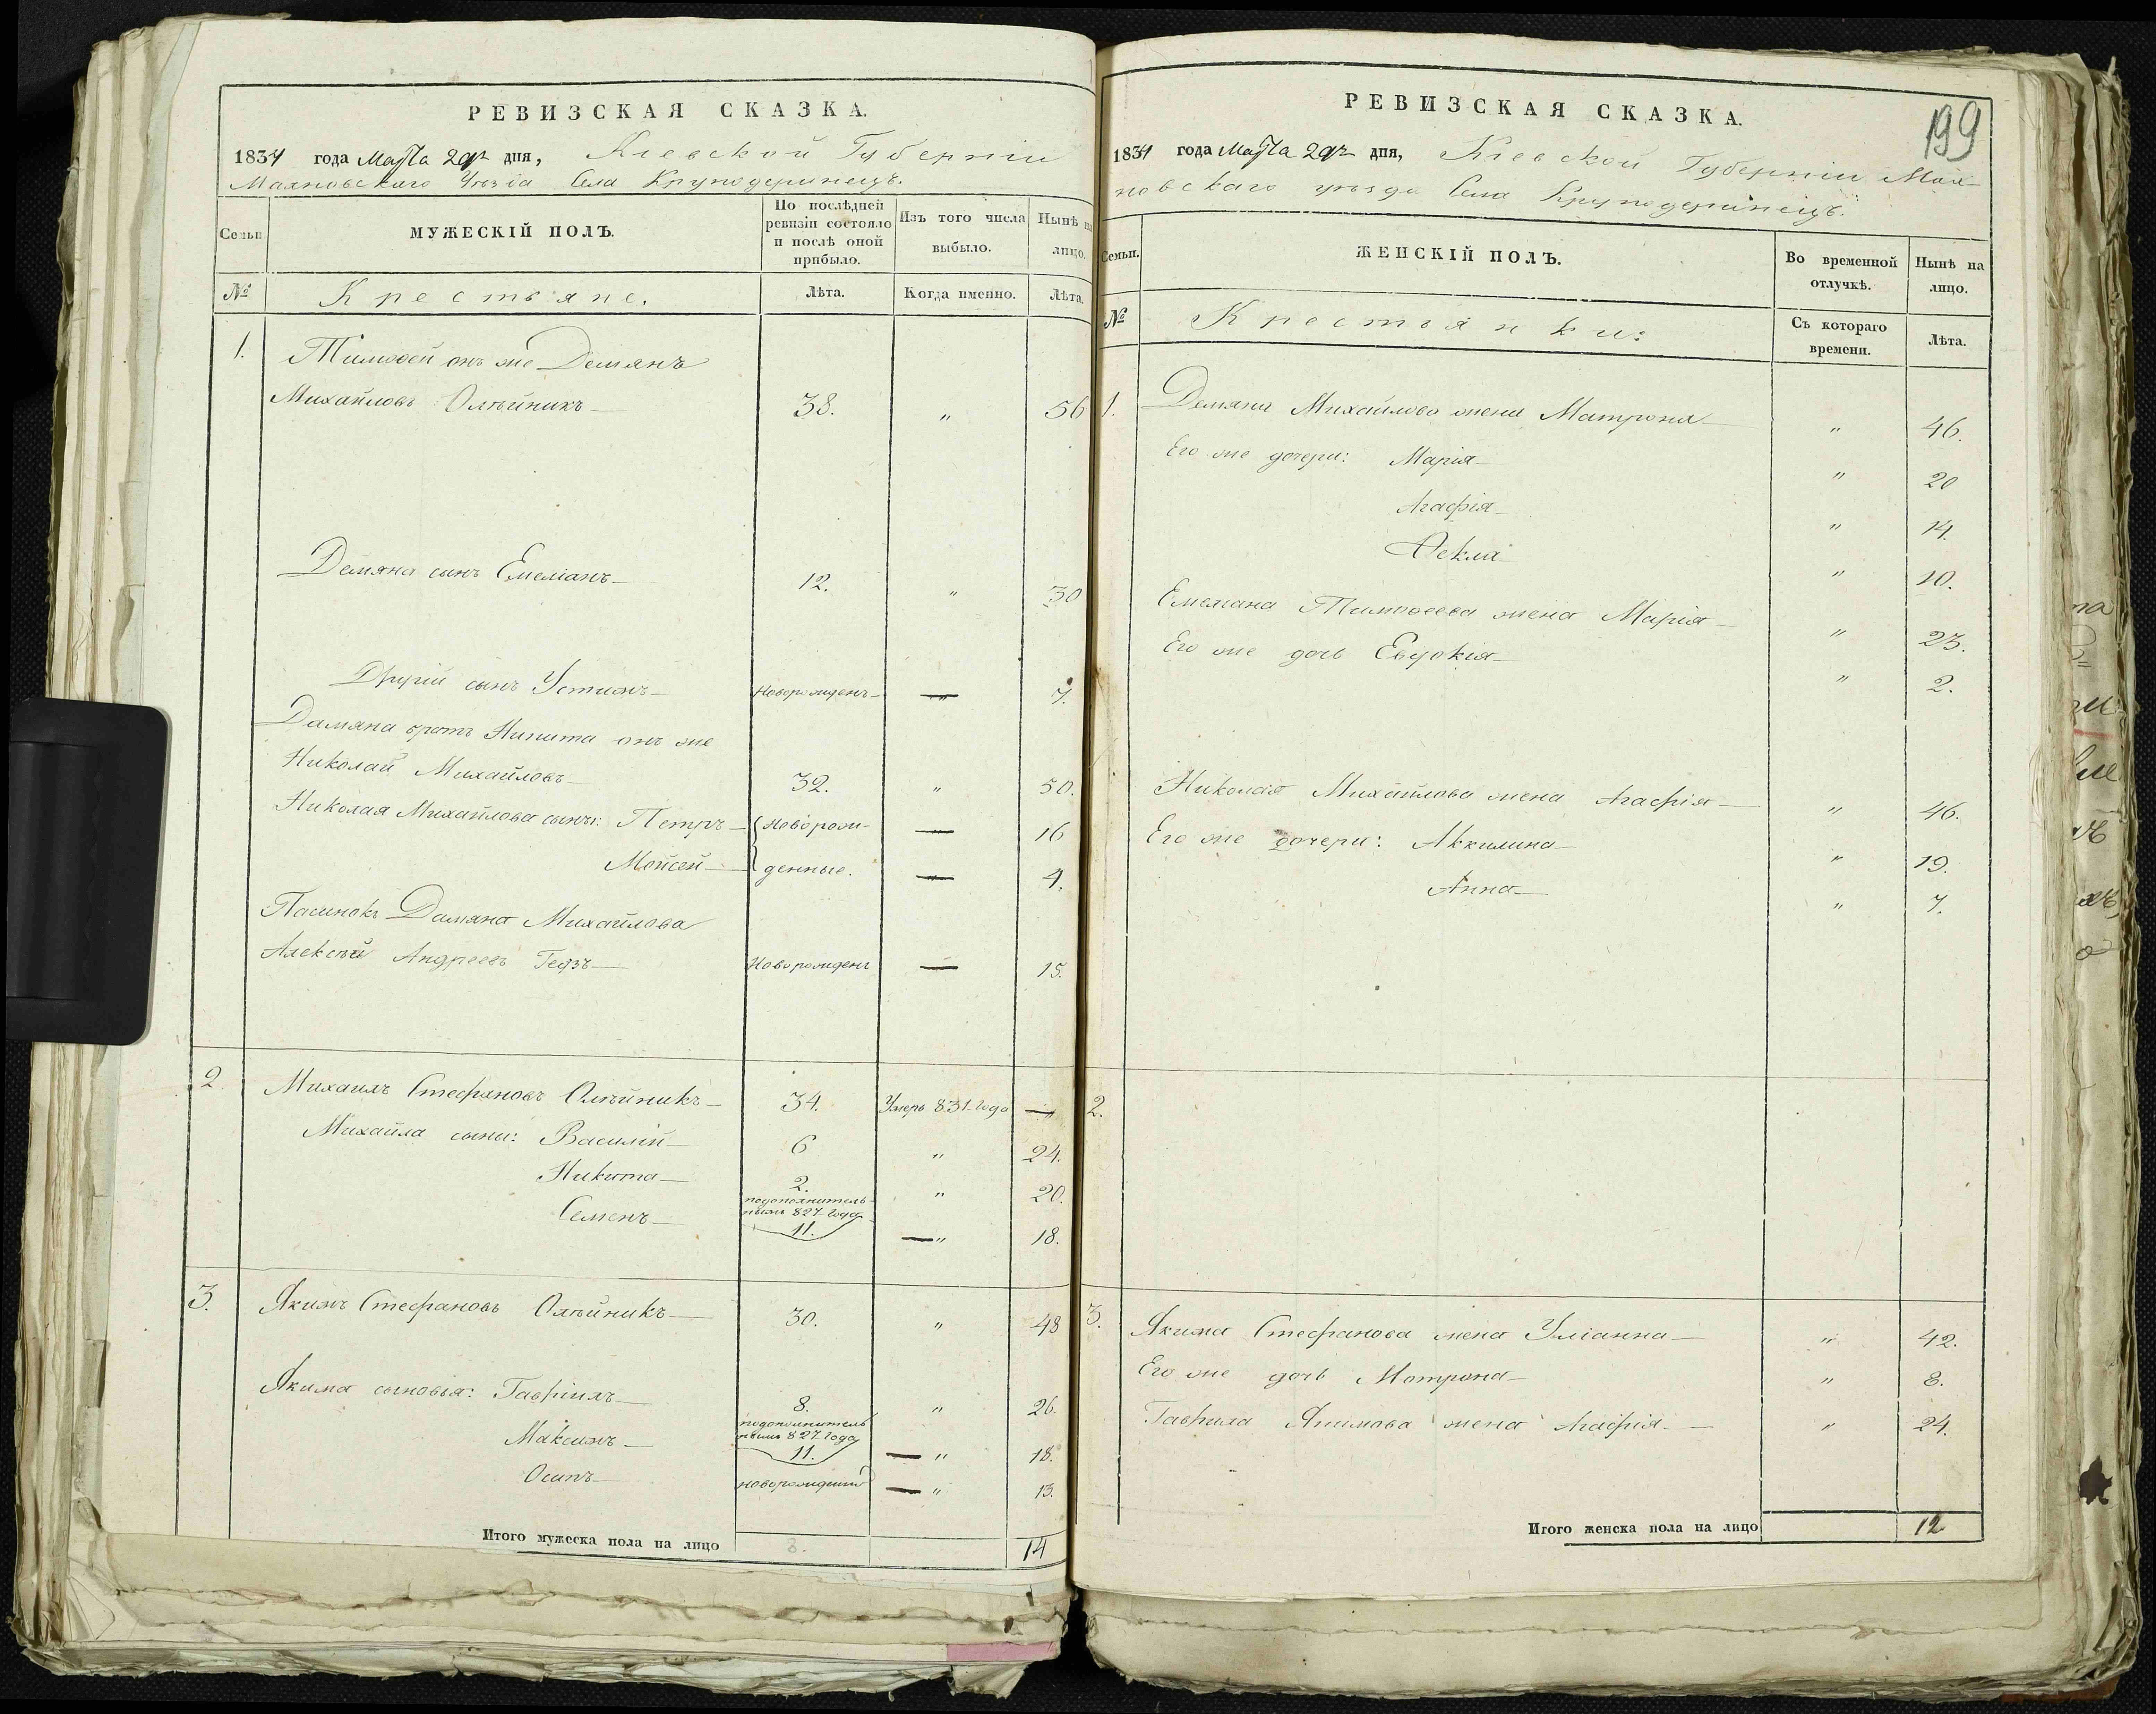 РЕВИЗСКАЯ СКАЗКА.
1834 года Марта 29го дня, Кіевской Губерніи
Махновскаго Уѣзда Села Круподеринецъ.
Семьи
МУЖЕСКІЙ ПОЛЪ.
По послѣдней
ревизіи состояло
и послѣ оной
прибыло.
Изъ того числа
выбыло.
Нынѣ на
лицо.
№
Крестьяне.
Лѣта.
Когда именно.
Лѣта.
1. Тимофей онъ же Демянъ
Михайловъ Олѣйникъ 38. " 56
Демяна сынъ Емеліанъ 12. " 30
Другій сынъ Устимъ Новорожденъ " 7.
Дамяна братъ Никита онъ же
Николай Михайловъ 32. " 50.
Николая Михайлова сыны: Петръ Новорож- 16
Мойсей денные. 4.
Пасинокъ Дамяна Михайлова
Алексѣй Андреевъ Новорожденъ 15.
2 Михаилъ Стефановъ Олѣйникъ 34. Умеръ 831 года "
Михайла сыны: Василій 6 " 24.
Никита 2. " 20.
подополнитель-
нымъ 827 года
Семенъ 11. " 18.
3. Якимъ Стефановъ Олѣйникъ 30. " 48
Якима сыновья: Гавріилъ 8. " 26.
подополнитель
нымъ 827 года
Максимъ 11. " 18.
Осипъ новорожденный " 13.
Итого мужеска пола на лицо 8. 14
РЕВИЗСКАЯ СКАЗКА.
199
1834 года Марта 29го дня, Кіевской Губерніи Мах-
новскаго уѣзда Села Круподеринецъ.
Семьи.
ЖЕНСКІЙ ПОЛЪ.
Во временной
отлучкѣ.
Нынѣ на
лицо.
№
Крестьянки:
Съ котораго
времени.
Лѣта.
1. Демяна Михайлова жена Матрона " 46.
Его же дочери: Марія " 20
Агафія " 14.
Ѳекла " 10.
Емеліана Тимофеева жена Марія " 23.
Его же дочь Евдокія " 2.
Николая Михайлова жена Агафія " 46.
Его же дочери: Аккилина " 19.
Анна " 7.
2.
3. Якима Стефанова жена Уліанна " 42.
Его же дочь Матрона " 8.
Гаврила Якимова жена Агафія " 24.
Итого женска пола на лицо 12